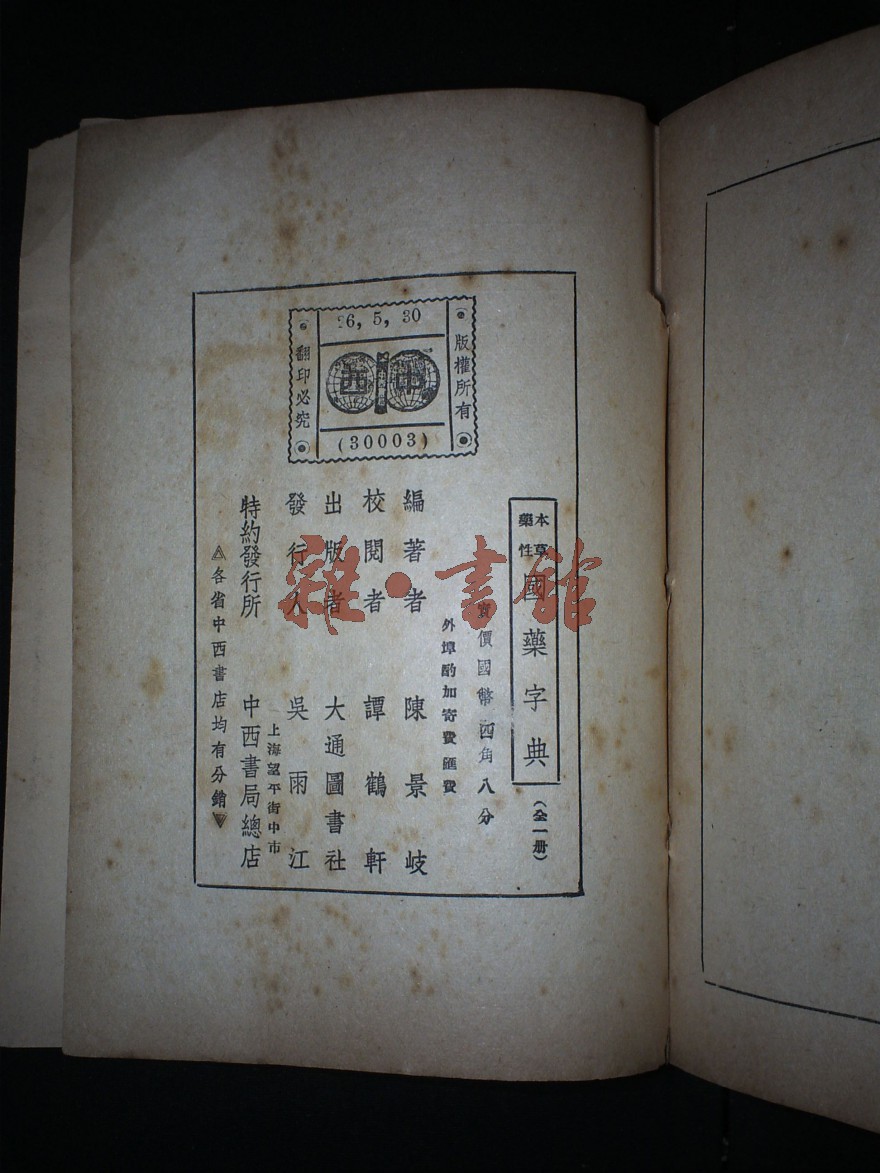 26, 5, 30
版權所有
翻印必究
中西
(30003)
本草
藥性
國藥字典
(全一册)
實價國幣四角八分
外埠酌加寄費匯費
編著者 陳景岐
校閱者 譚鶴軒
出版者 大通圖書社
發行人 吳雨江
上海望平街中市
特約發行所 中西書局總店
各省中西書店均有分銷
雜·書館